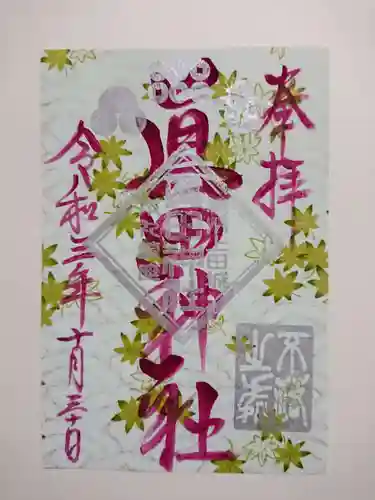 奉拝
眞田神社
令和三年十月三十日